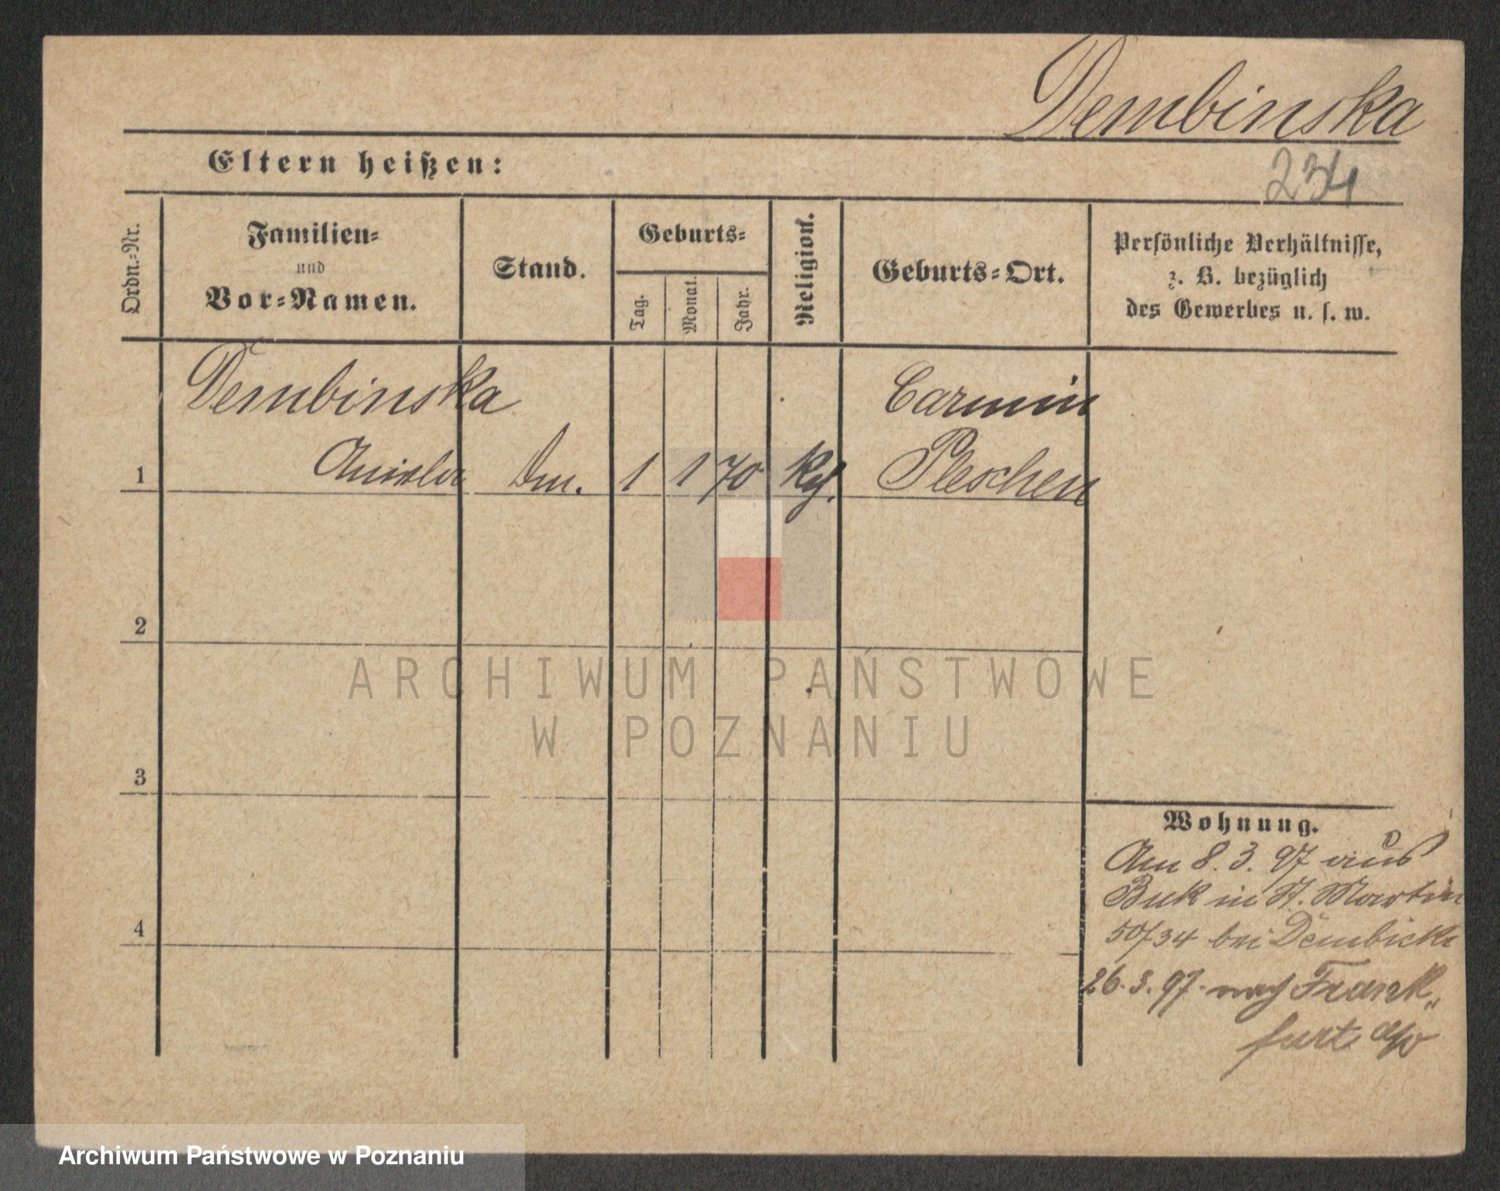 Dembinska
Eltern heißen:
234
Ordn.-Nr.
Familien-
und
Vor-Namen.
Stand.
Geburts-
Tag.
Monat.
Jahr.
Religion.
Geburts-Ort.
Persönliche Verhältnisse,
z. B. bezüglich
des Gewerbes u. s. w.
Dembinska
Carmin
1
1 1 70
Pleschen
2
3
4
Wohnung.
Am 8. 3. 97 aus
Buk in St. Martin
50/34 bei
26. 3. 97. nach Frank„
furt a/o
ARCHIWUM PAŃSTWOWE
W POZNANIU
Archiwum Państwowe w Poznaniu